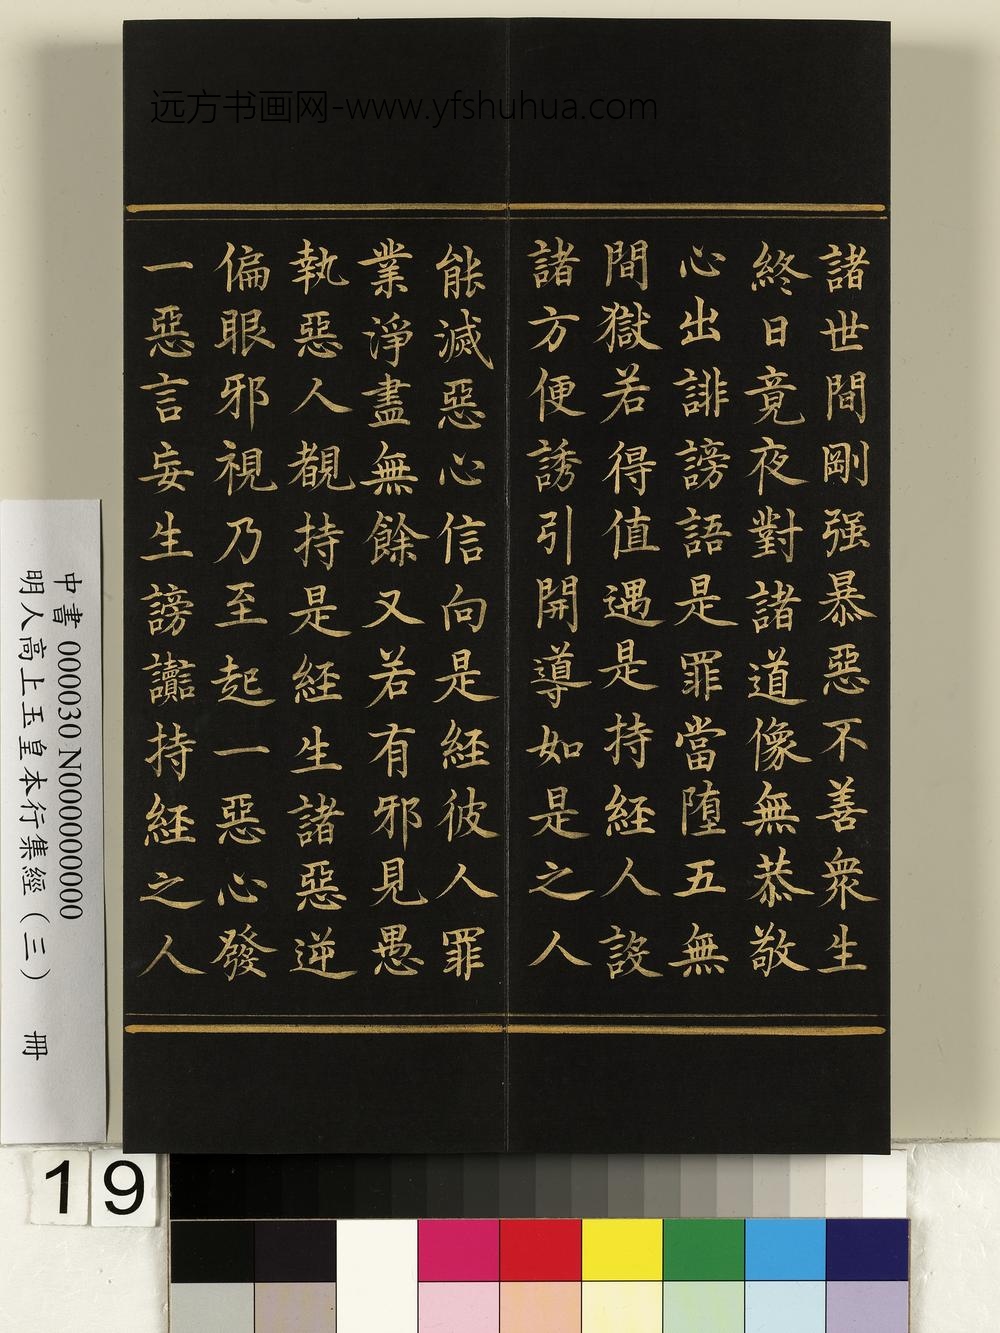 远方书画网-www.yfshuhua.com
諸世間剛强暴惡不善衆生
終日竟夜對諸道像無恭敬
心出誹謗語是罪當堕五無
間獄若得值遇是持經人設
諸方便誘引開導如是之人
能滅惡心信向是経彼人罪
業淨盡無餘又若有邪見愚
執惡人覩持是経生諸惡逆
偏眼邪視乃至起一惡心發
一惡言妄生謗讟持経之人
中書 000030 N000000000
明人高上玉皇本行集經(三) 冊
19